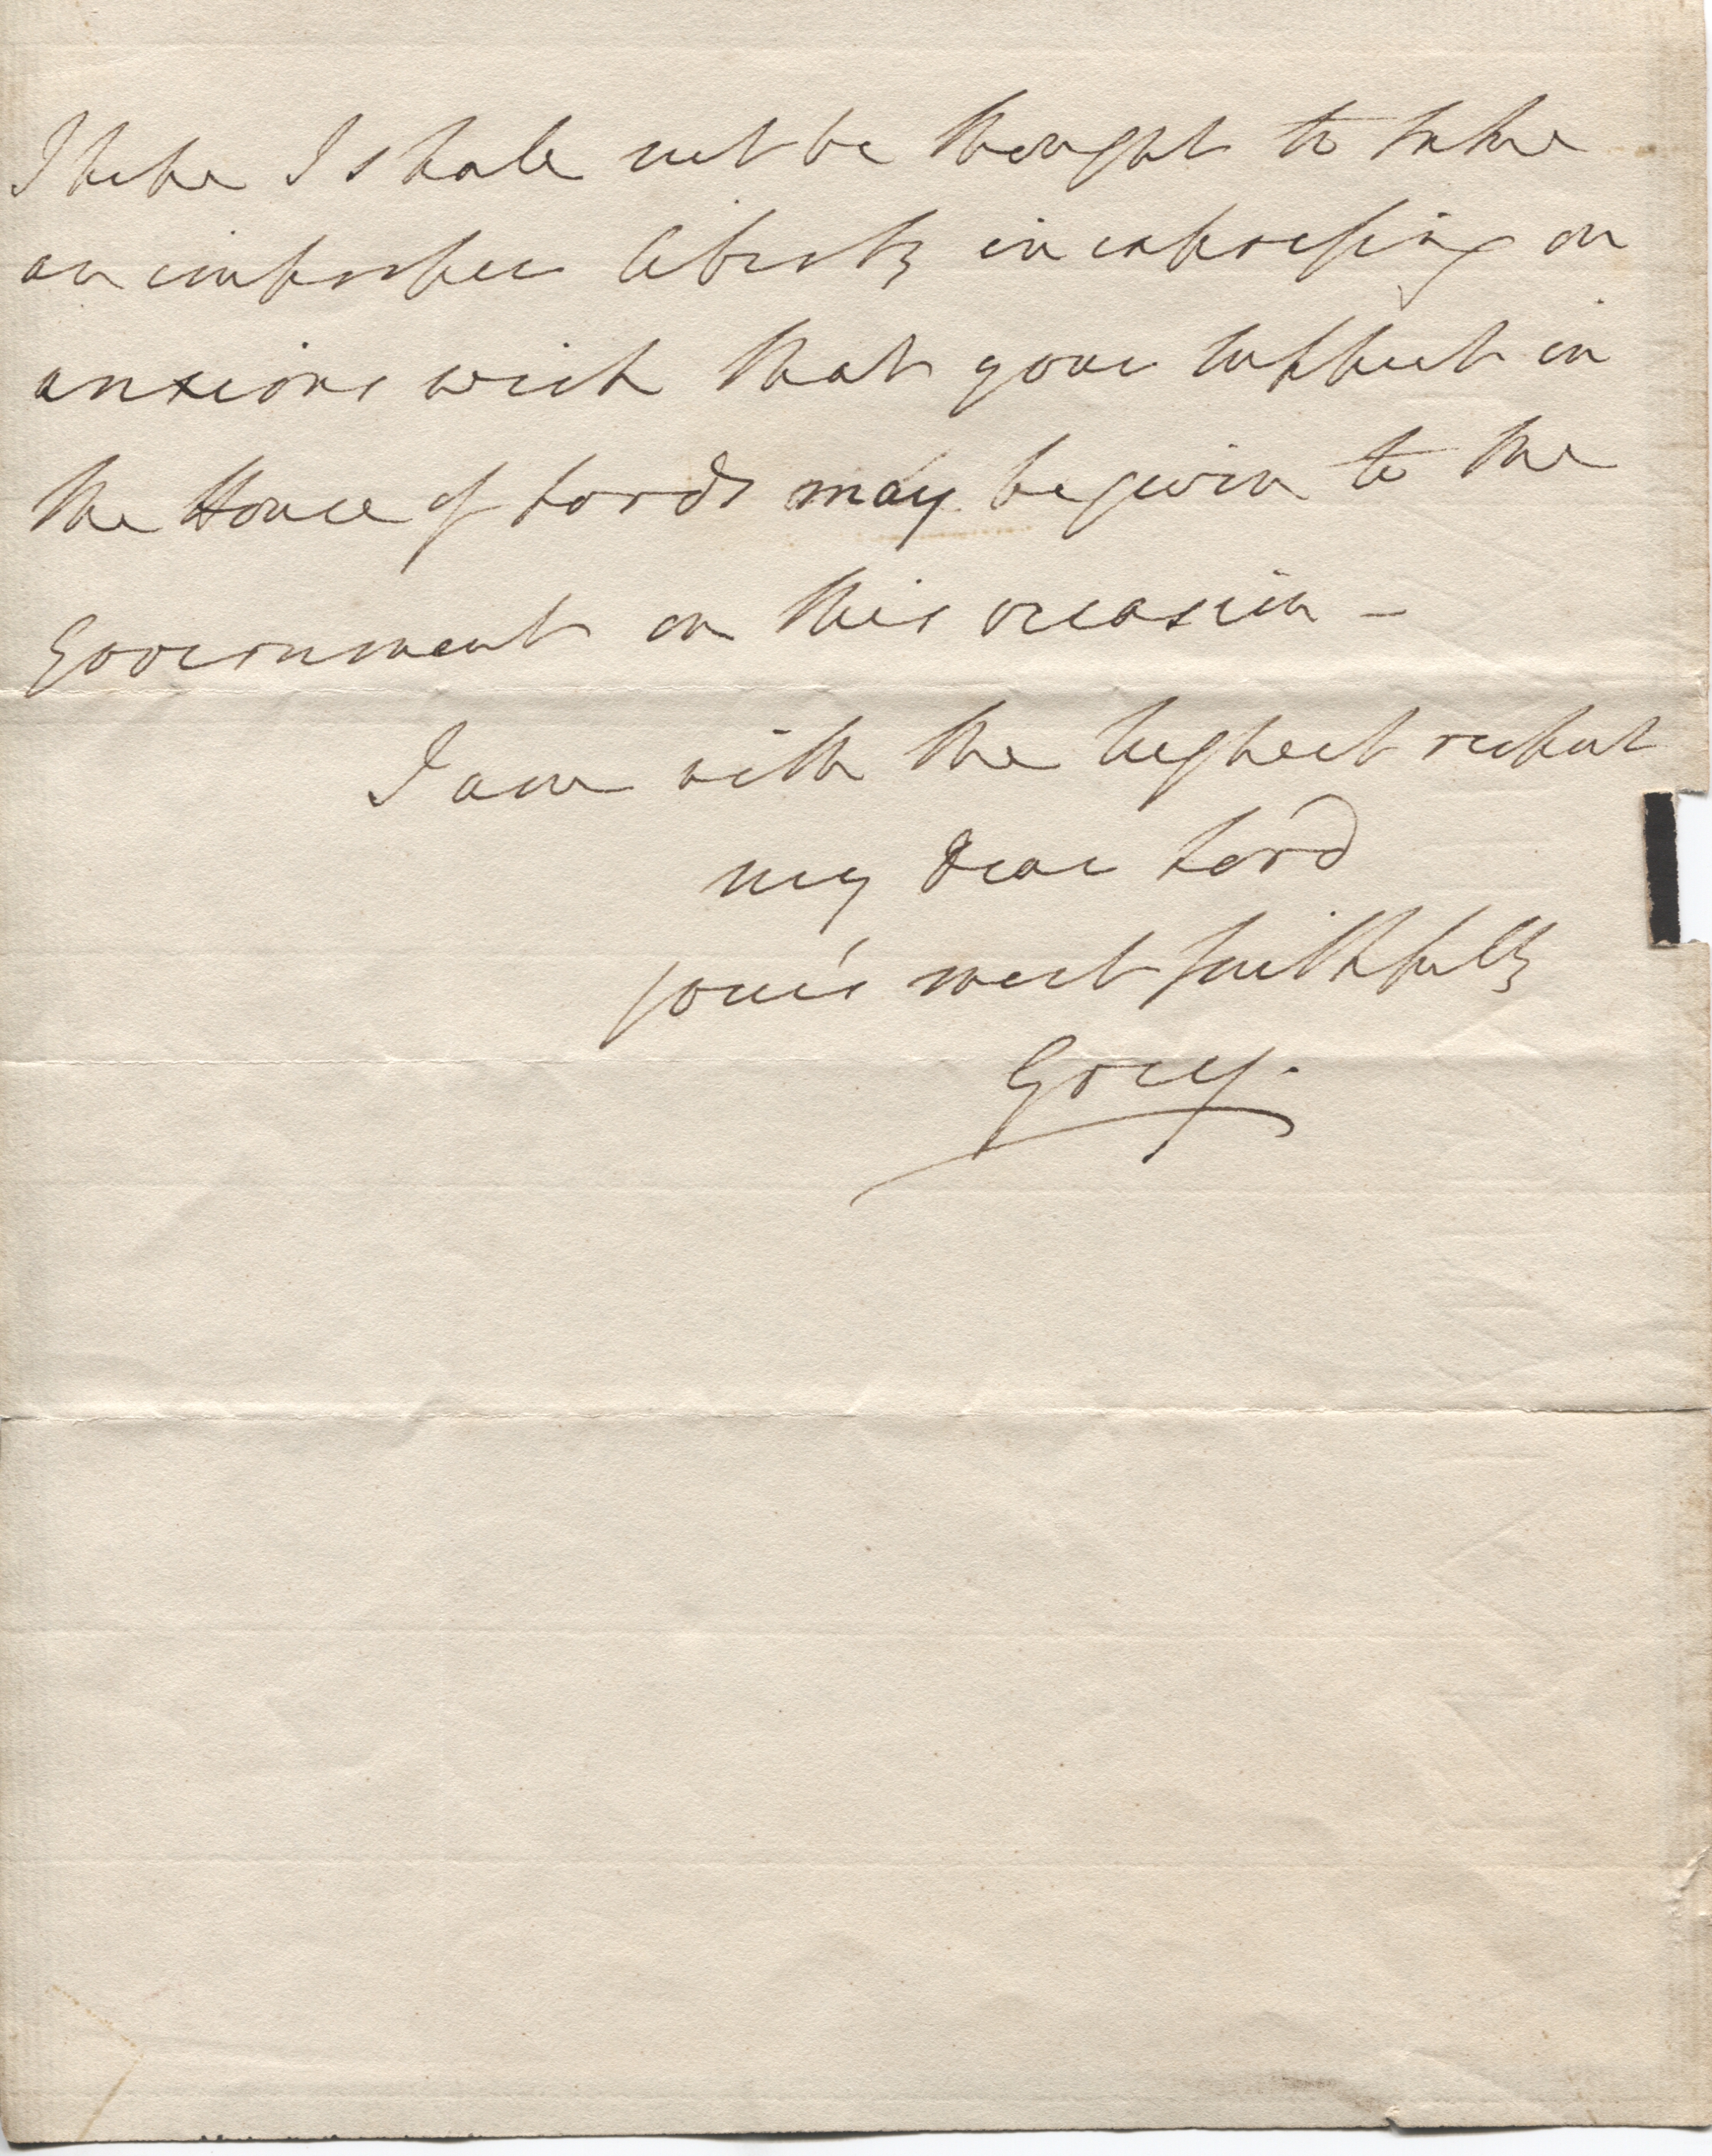 I hope I shall not be thought to take
an improper liberty in expressing an
anxious wish that your support in
the House of Lords may be given to the
Government on this occasion –
I am with the highest respect
my dear Lord
yours most faithfully
Grey.